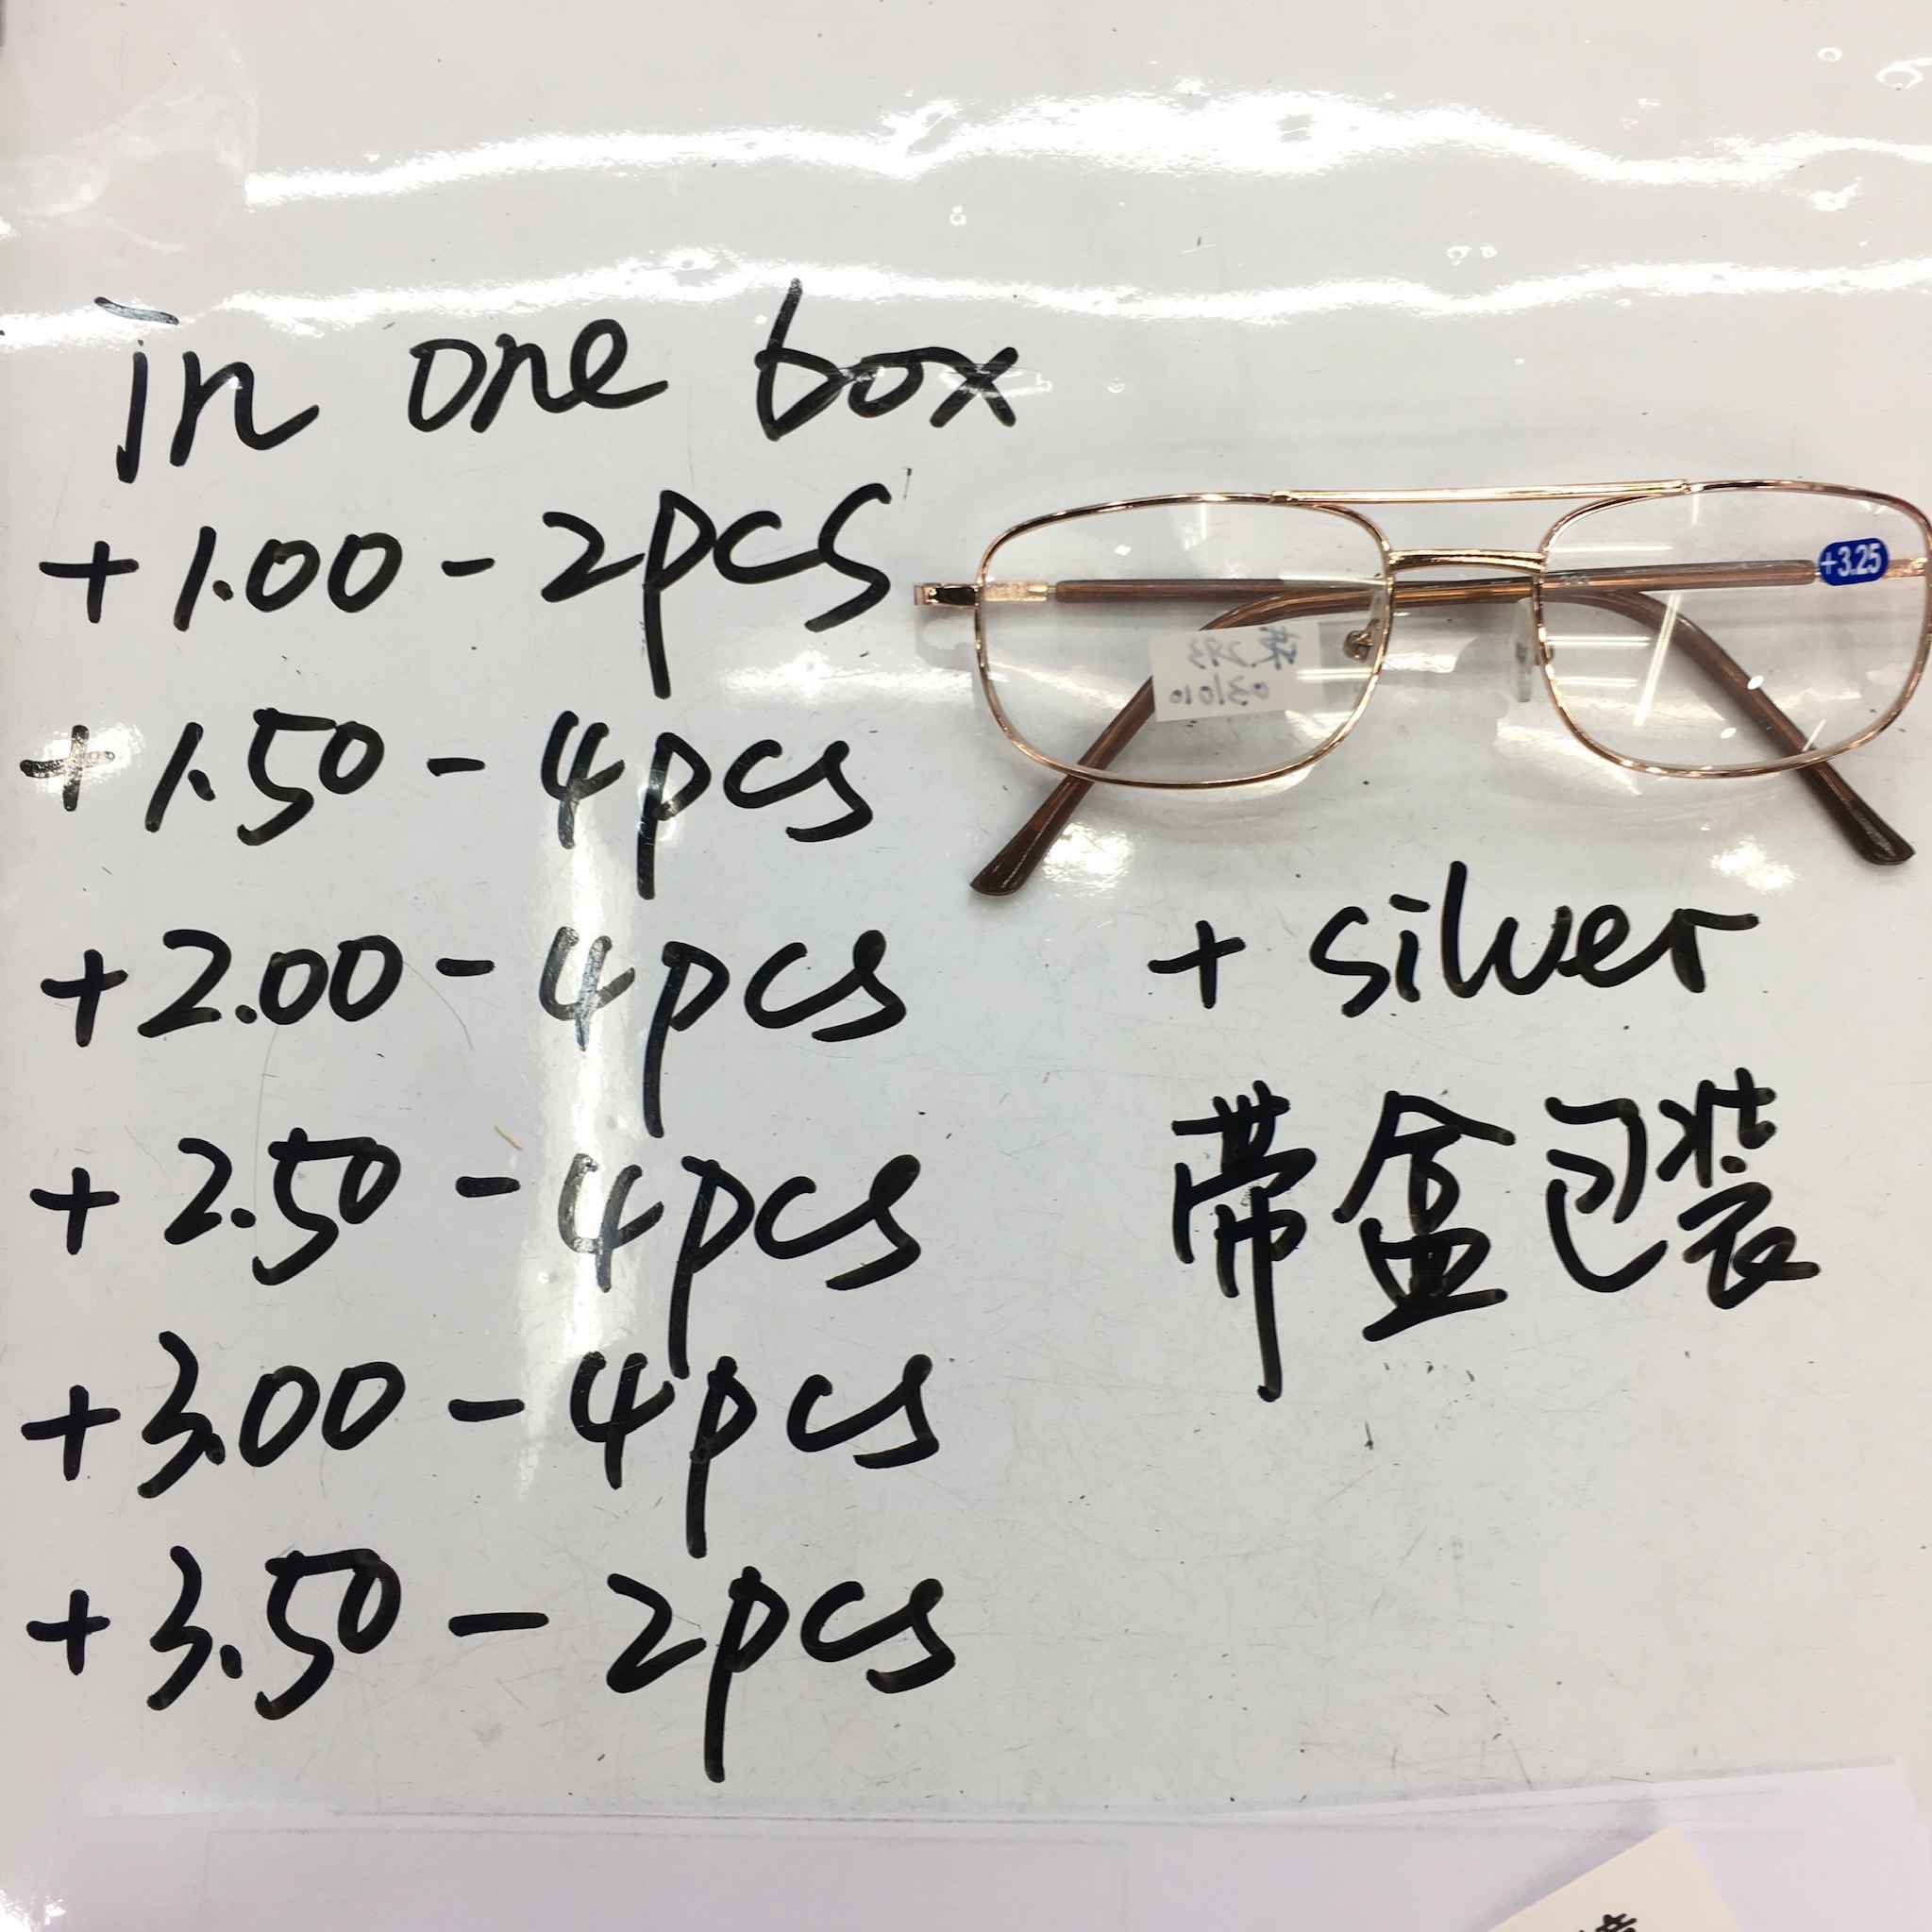 in one box
+1.00 - 2pcs
+1.50 - 4pcs
+2.00 - 4pcs
+2.50 - 4pcs
+3.00 - 4pcs
+3.50 - 2pcs
+3.25
+ silver
带盒包装